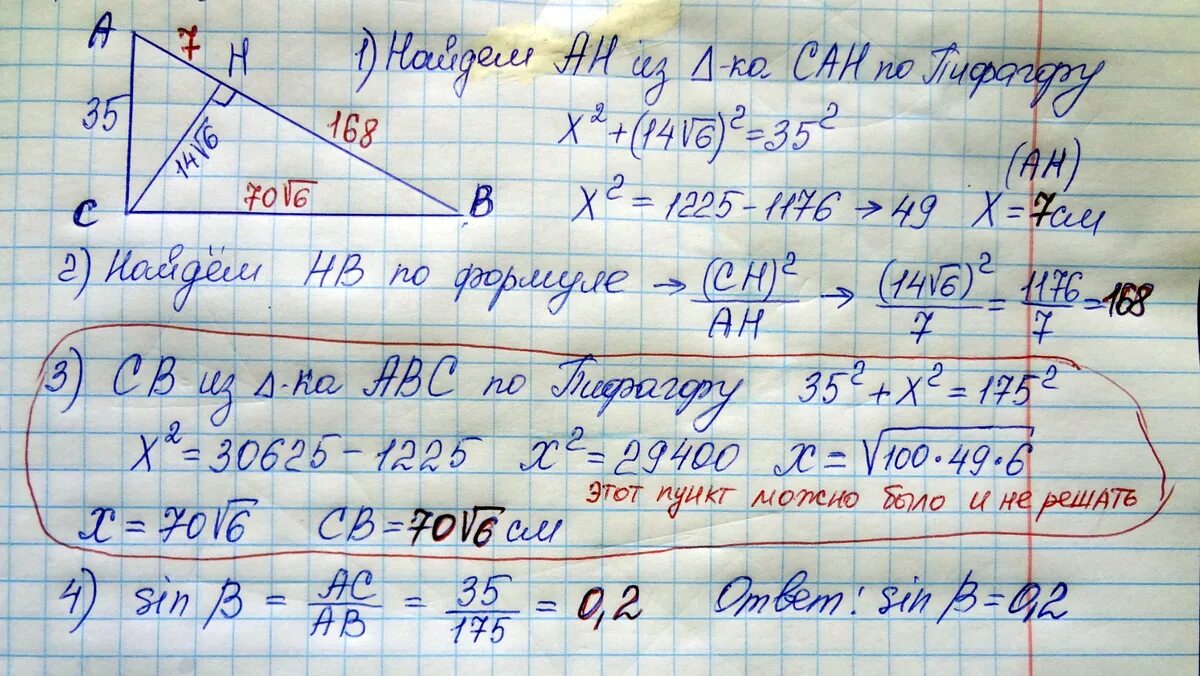 A 7 H
35 14√6 168
C 70√6 B
1) Найдем AH из Δ-ка CAH по Пифагору
X² + (14√6)² = 35²
(AH)
X² = 1225 - 1176 → 49 X = 7см
2) Найдём HB по формуле → (CH)²/AH → (14√6)²/7 = 1176/7 = 168
3) CB из Δ-ка ABC по Пифагору 35² + X² = 175²
X² = 30625 - 1225 X² = 29400 X = √100·49·6
этот пункт можно было и не решать
X = 70√6 CB = 70√6 см
4) sin β = AC/AB = 35/175 = 0,2 Ответ: sin β = 0,2